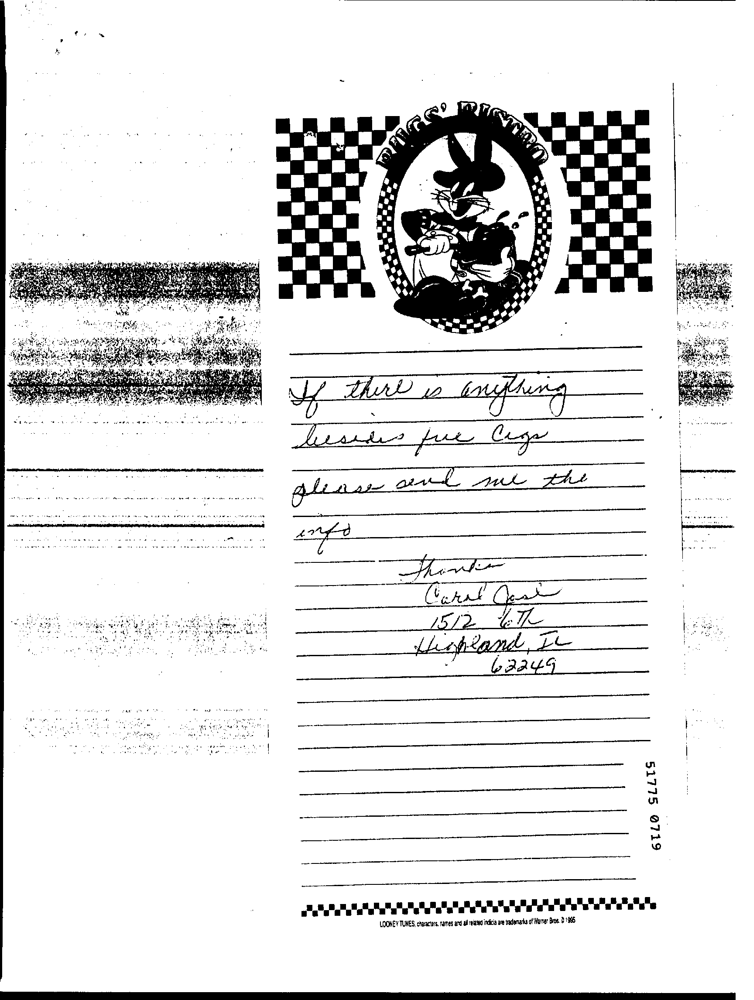 BUGS' BISTRO
If there is anything
besides free Cigs
please send me the
info
Thanks
Carol
1512 6th
Highland, IL
62249
51775 0719
LOONEY TUNES, characters, names and all related indicia are trademarks of Warner Bros. © 1995